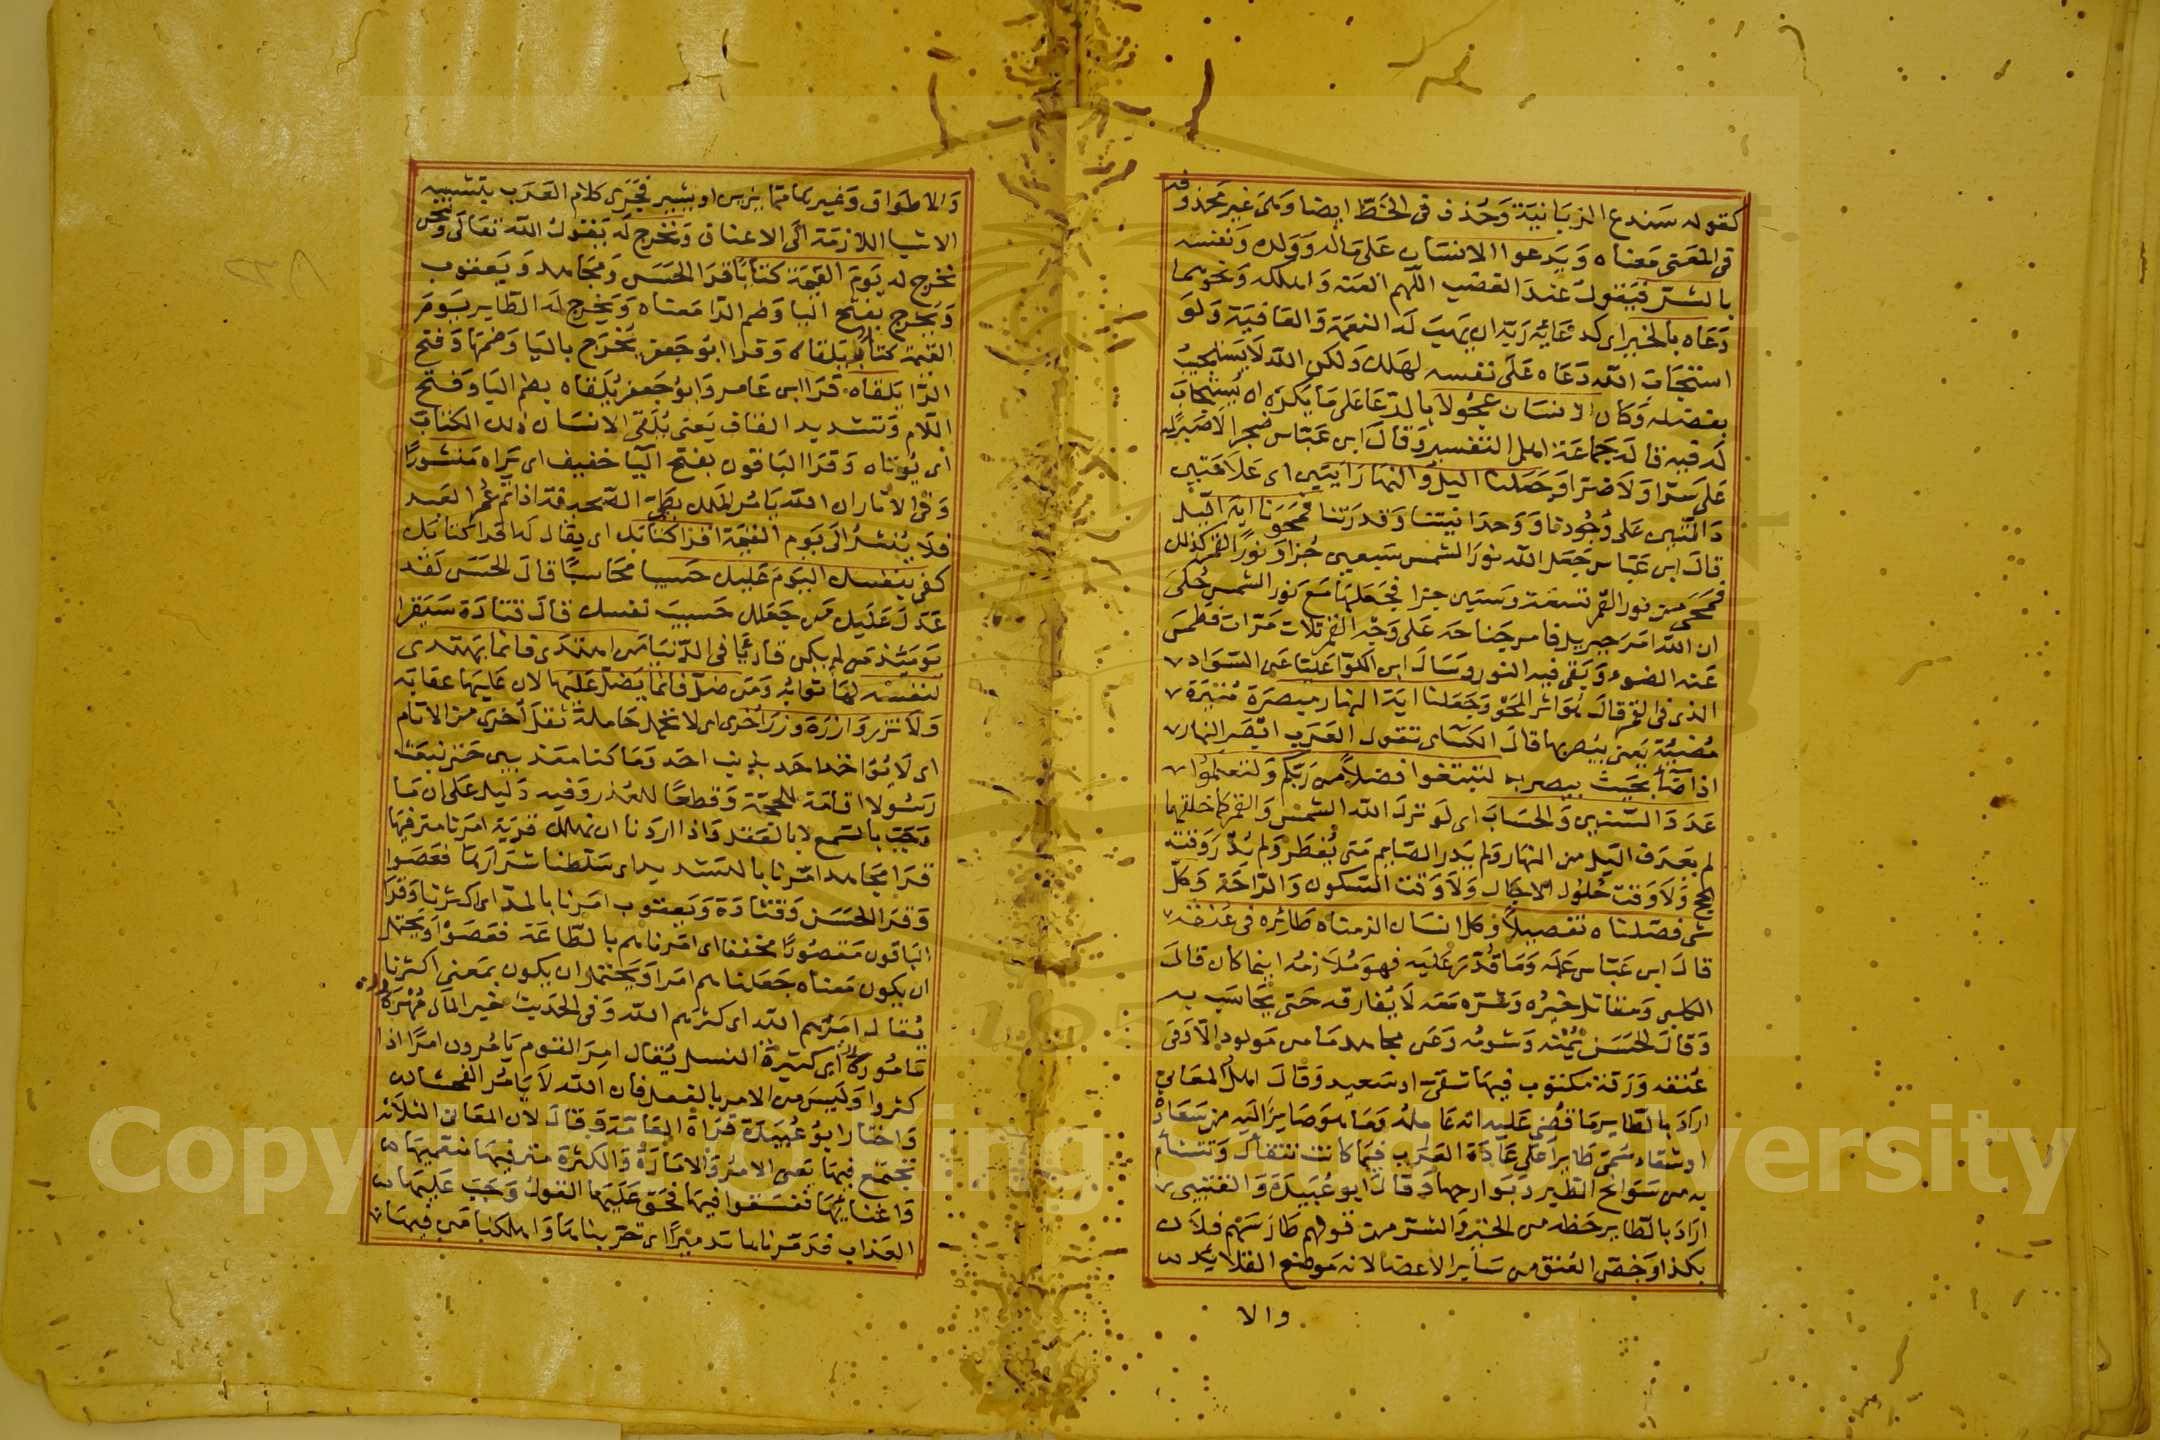 كقوله سندع الزبانية وحذف في الخط ايضا وهي غير محذوفه
في المعنى معناه ويدعوا الانسان على ماله وولده ونفسه
بالشر فيقول عند الغضب اللهم العنه واهلكه ونحوهما
دعاه بالخير اي كدعائه ربه ان يهب له النعمة والعافية ولو
استجاب الله دعاه على نفسه لهلك ولكن الله لا يستجيب
بفضله وكان الانسان عجولا بالدعا على ما يكره ان يستجاب
له فيه قاله جماعة اهل التفسير وقال ابن عباس ضجر الا صبر له
على سرا ولا ضرا وجعلنا اليل والنهار ايتين اي علامتين
دالتين على وجودنا ووحدانيتنا وقدرتنا فمحونا اية اليل
قال ابن عباس جعل الله نور الشمس سبعين جزا ونور القمر كذلك
فمحى من نور القمر تسعة وستين جزا فجعلها مع نور الشمس حكى
ان الله امر جبريل فامر جناحه على وجه القمر ثلاث مرات فطمس
عنه الضوء وبقى فيه النور وسال ابن الكوا عليا عن السواد
الذي في القمر قال هو اثر المحو وجعلنا اية النهار مبصرة منيرة
مضيئة يعني يبصر بها قال الكسائي تقول العرب ابصر النهار
اذا اضآ بحيث يبصر بها لتبتغوا فضلا من ربكم ولتعلموا
عدد السنين والحساب اي لو ترك الله الشمس والقمر كما خلقهما
لم يعرف اليل من النهار ولم يدر الصايم متى يفطر ولم يدر وقت
الحج ولا وقت حلول الاجال ولا وقت السكون والراحة وكل
شي فصلناه تفصيلا وكل انسان الزمناه طائره في عنقه
قال ابن عباس عمله وما قدر عليه فهو ملازمه اينما كان قال
الكلبي ومقاتل خيره وشره معه لا يفارقه حتى يحاسب به
وقال الحسن يمنه وشومه وعن مجاهد ما من مولود الا وفي
عنقه ورقة مكتوب فيها شقي او سعيد وقال اهل المعاني
اراد بالطاير ما قضى عليه انه عامله وما هو صاير اليه من سعادة
او شقاء سمى طايرا على عادة العرب فيما كانت تتفال وتتشأم
به من سوانح الطير وبوارحها وقال ابو عبيدة والقتيبي
اراد بالطاير حظه من الخير والشر من قولهم طار سهم فلان
بكذا وخص العنق من ساير الاعضا لانه موضع القلايد
والا
والاطواق وغيرهما مما يزين او يشين فجرى كلام العرب بتشبيه
الاشيا اللازمة الى الاعناق ونخرج له يقول الله تعالى ونحن
نخرج له يوم القيمة كتابا قرا الحسن ومجاهد ويعقوب
ويخرج بفتح اليا وضم الرا معناه ويخرج له الطاير يوم
القيمة كتابا يلقاه وقرا ابو جعفر يخرج باليا وضمها وفتح
الرا يلقاه قرا ابن عامر وابو جعفر يلقاه بضم اليا وفتح
اللام وتشديد القاف يعني يلقى الانسان ذلك الكتاب
اي يوتاه وقرا الباقون بفتح اليا خفيف اي يراه منشورا
وفي الاثار ان الله يامر الملك بطي الصحيفة اذا تم عمر العبد
فلا ينشر الى يوم القيمة اقرا كتابك اي يقال له اقرا كتابك
كفى بنفسك اليوم عليك حسيبا محاسبا قال الحسن لقد
عدل عليك من جعلك حسيب نفسك قال قتادة سيقرا
يومئذ من لم يكن قارئا في الدنيا من اهتدى فانما يهتدى
لنفسه لها ثوابه ومن ضل فانما يضل عليها لان عليها عقابه
ولا تزر وازرة وزر اخرى اي لا تحمل حاملة ثقل اخرى من الاثام
اي لا يؤاخذ احد بذنب احد وما كنا معذبين حتى نبعث
رسولا اقامة للحجة وقطعا للعذر وفيه دليل على ان ما
وجب بالسمع لا بالعقل واذا اردنا ان نهلك قرية امرنا مترفيها
قرا مجاهد امرنا بالتشديد اي سلطنا شرارها فعصوا
وقرا الحسن وقتادة ويعقوب امرنا بالمد اي اكثرنا وقرا
الباقون مقصورا مخففا اي امرناهم بالطاعة فعصوا ويحتمل
ان يكون معناه جعلناهم امرا ويحتمل ان يكون بمعنى اكثرنا
يقال امرهم الله اي كثرهم الله وفي الحديث خير المال مهرة
مامورة اي كثيرة النسل يقال امر القوم يامرون امرا اذا
كثروا وليس من الامر بالفعل فان الله لا يامر بالفحشا
واختار ابو عبيدة قراة العامة وقال لان المعاني الثلاثه
تجتمع فيها يعني الامر والامارة والكثرة مترفيها منعميها
واغنيائها ففسقوا فيها فحق عليها القول وجب عليها
العذاب فدمرناها تدميرا اي خربناها واهلكنا من فيها